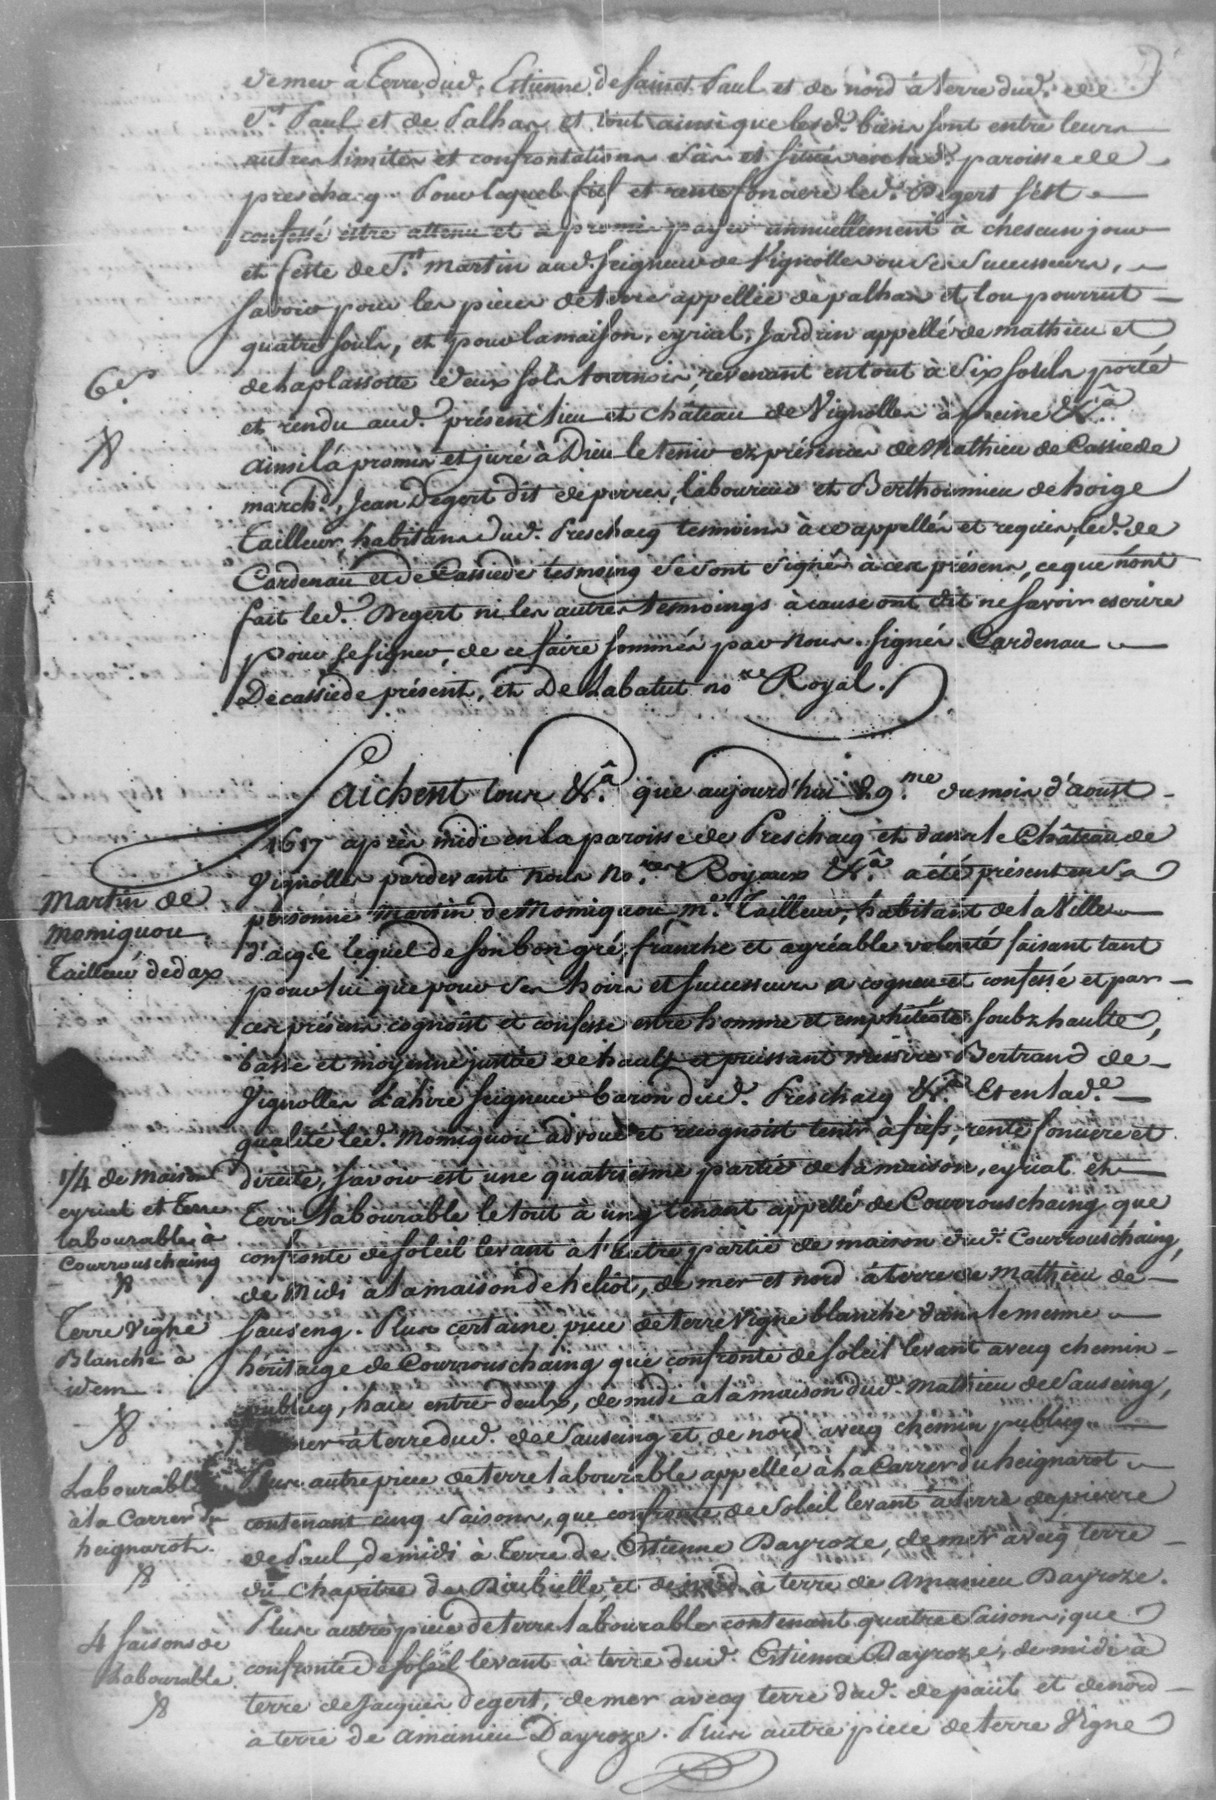 de mer à terre dud. Estienne de Sainct Paul et de nord à terre dud. de
St. Paul et de Palhas et tout ainsi que lesd. biens sont entre leurs
autres limites et confrontations sis et situés en lad. paroisse de
preschacq. Pour lequel fief et rente fonciere led. Degert s'est
confessé estre attenu et a promis payer annuellement à chescun jour
et feste de St. Martin aud. seigneur de Vignolles ou ses successeurs,
savoir pour les pieces de terre appellée de palhas et lou pourrut
quatre souls, et pour la maison, eyrial, Jardrin appellé de mathieu et
de laplassotte deux sols tournois, revenant en tout à six souls porté
et rendu aud. présent lieu et château de Vignolles à peine &a.
6s
ainsi l'a promis et juré à Dieu le tenir ez présences de Mathieu de Cassiede
marchd., Jean Degert dit de perres, laboureur et Berthommieu de hoige
Tailleur, habitans dud. Preschacq tesmoins à ce appellés et requis, led. de
Cardenau et de Cassiede tesmoing se sont signés à ces présens, ce que n'ont
fait led. Degert ni les autres tesmoings à cause ont dit ne savoir escrire
pour se signer, de ce faire sommés par nous. Signés Cardenau
Decassiede présent, et De Labatut nore Royal.
Saichent tous &a. que aujourd'hui 29.me du mois d'aoust
1617 après midi en la paroisse de Preschacq et dans le Château de
Vignolles pardevant nous nores Royaux &a. a été présent en sa
personne Martin de Momiquou me. Tailleur, habitant de la Ville
d'acqs lequel de son bon gré, franche et agréable volonté faisant tant
pour lui que pour ses hoirs et successeurs a cogneu et confessé et par
ces présens cognoist et confesse estre homme et emphitéote soubz haulte,
basse et moyenne justice de hault et puissant messire Bertrand de
Vignolles Lahire seigneur baron dud. Preschacq &a. Et en lad.e
qualité led. Momiquou advoue et recognoist tenir à fiefs, rente fonciere et
directe, savoir est une quatriesme partie de la maison, eyrial et
Terre labourable le tout à ung tenant appellé de Courrouschaing que
confronte de soleil levant à l'autre partie de maison dud. Courrouschaing,
de Midi à la maison de heliot, de mer et nord à terre de Mathieu de
Sauseng. Plus certaine piece de terre vigne blanche dans le mesme
héritaige de Courrouschaing que confronte de soleil levant avecq chemin
publicq, haie entre deulx, de midi à la maison dud. Mathieu de Sauseing,
mer à terre dud. de Sauseing et de nord avecq chemin publicq
Plus autre piece de terre labourable appellée à la Carrer du heignarot
contenant cinq saisons, que confronte de soleil levant à terre de pierre
de Paul, de midi à terre de Estienne Dayroze, de mer avecq terre
du chapitre de et de nord à terre de Amanieu Dayroze.
Plus autre piece de terre labourable contenant quatre saisons, que
confronte de soleil levant à terre dud. Estienne Dayroze, de midi à
terre de Jacques Degert, de mer avecq terre dud. de paul et de nord
à terre de Amanieu Dayroze. Plus autre piece de terre Vigne
Martin de
Momiquou
Tailleur de dax
1/4 de maison
eyrial et Terre
labourable à
Courrouschaing
Terre vigne
Blanche à
idem
Labourable
à la Carrer du
heignarot
4 saisons de
Labourable